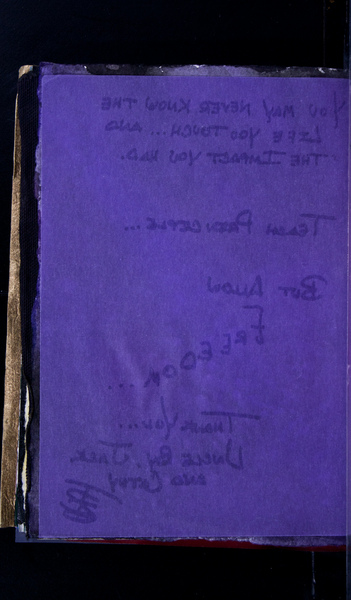 YOU MAY NEVER KNOW THE
LIFE YOU TOUCH... AND
THE IMPACT YOU HAD.
TEACH PRINCIPLE...
BUT ALLOW
FREEDOM...
THANK YOU...
UNCLE RY. JACK
AND